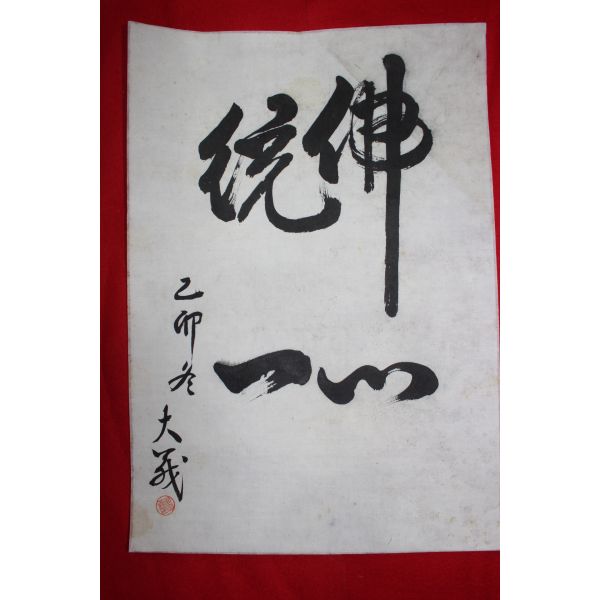 佛心
統一
乙卯冬
大義